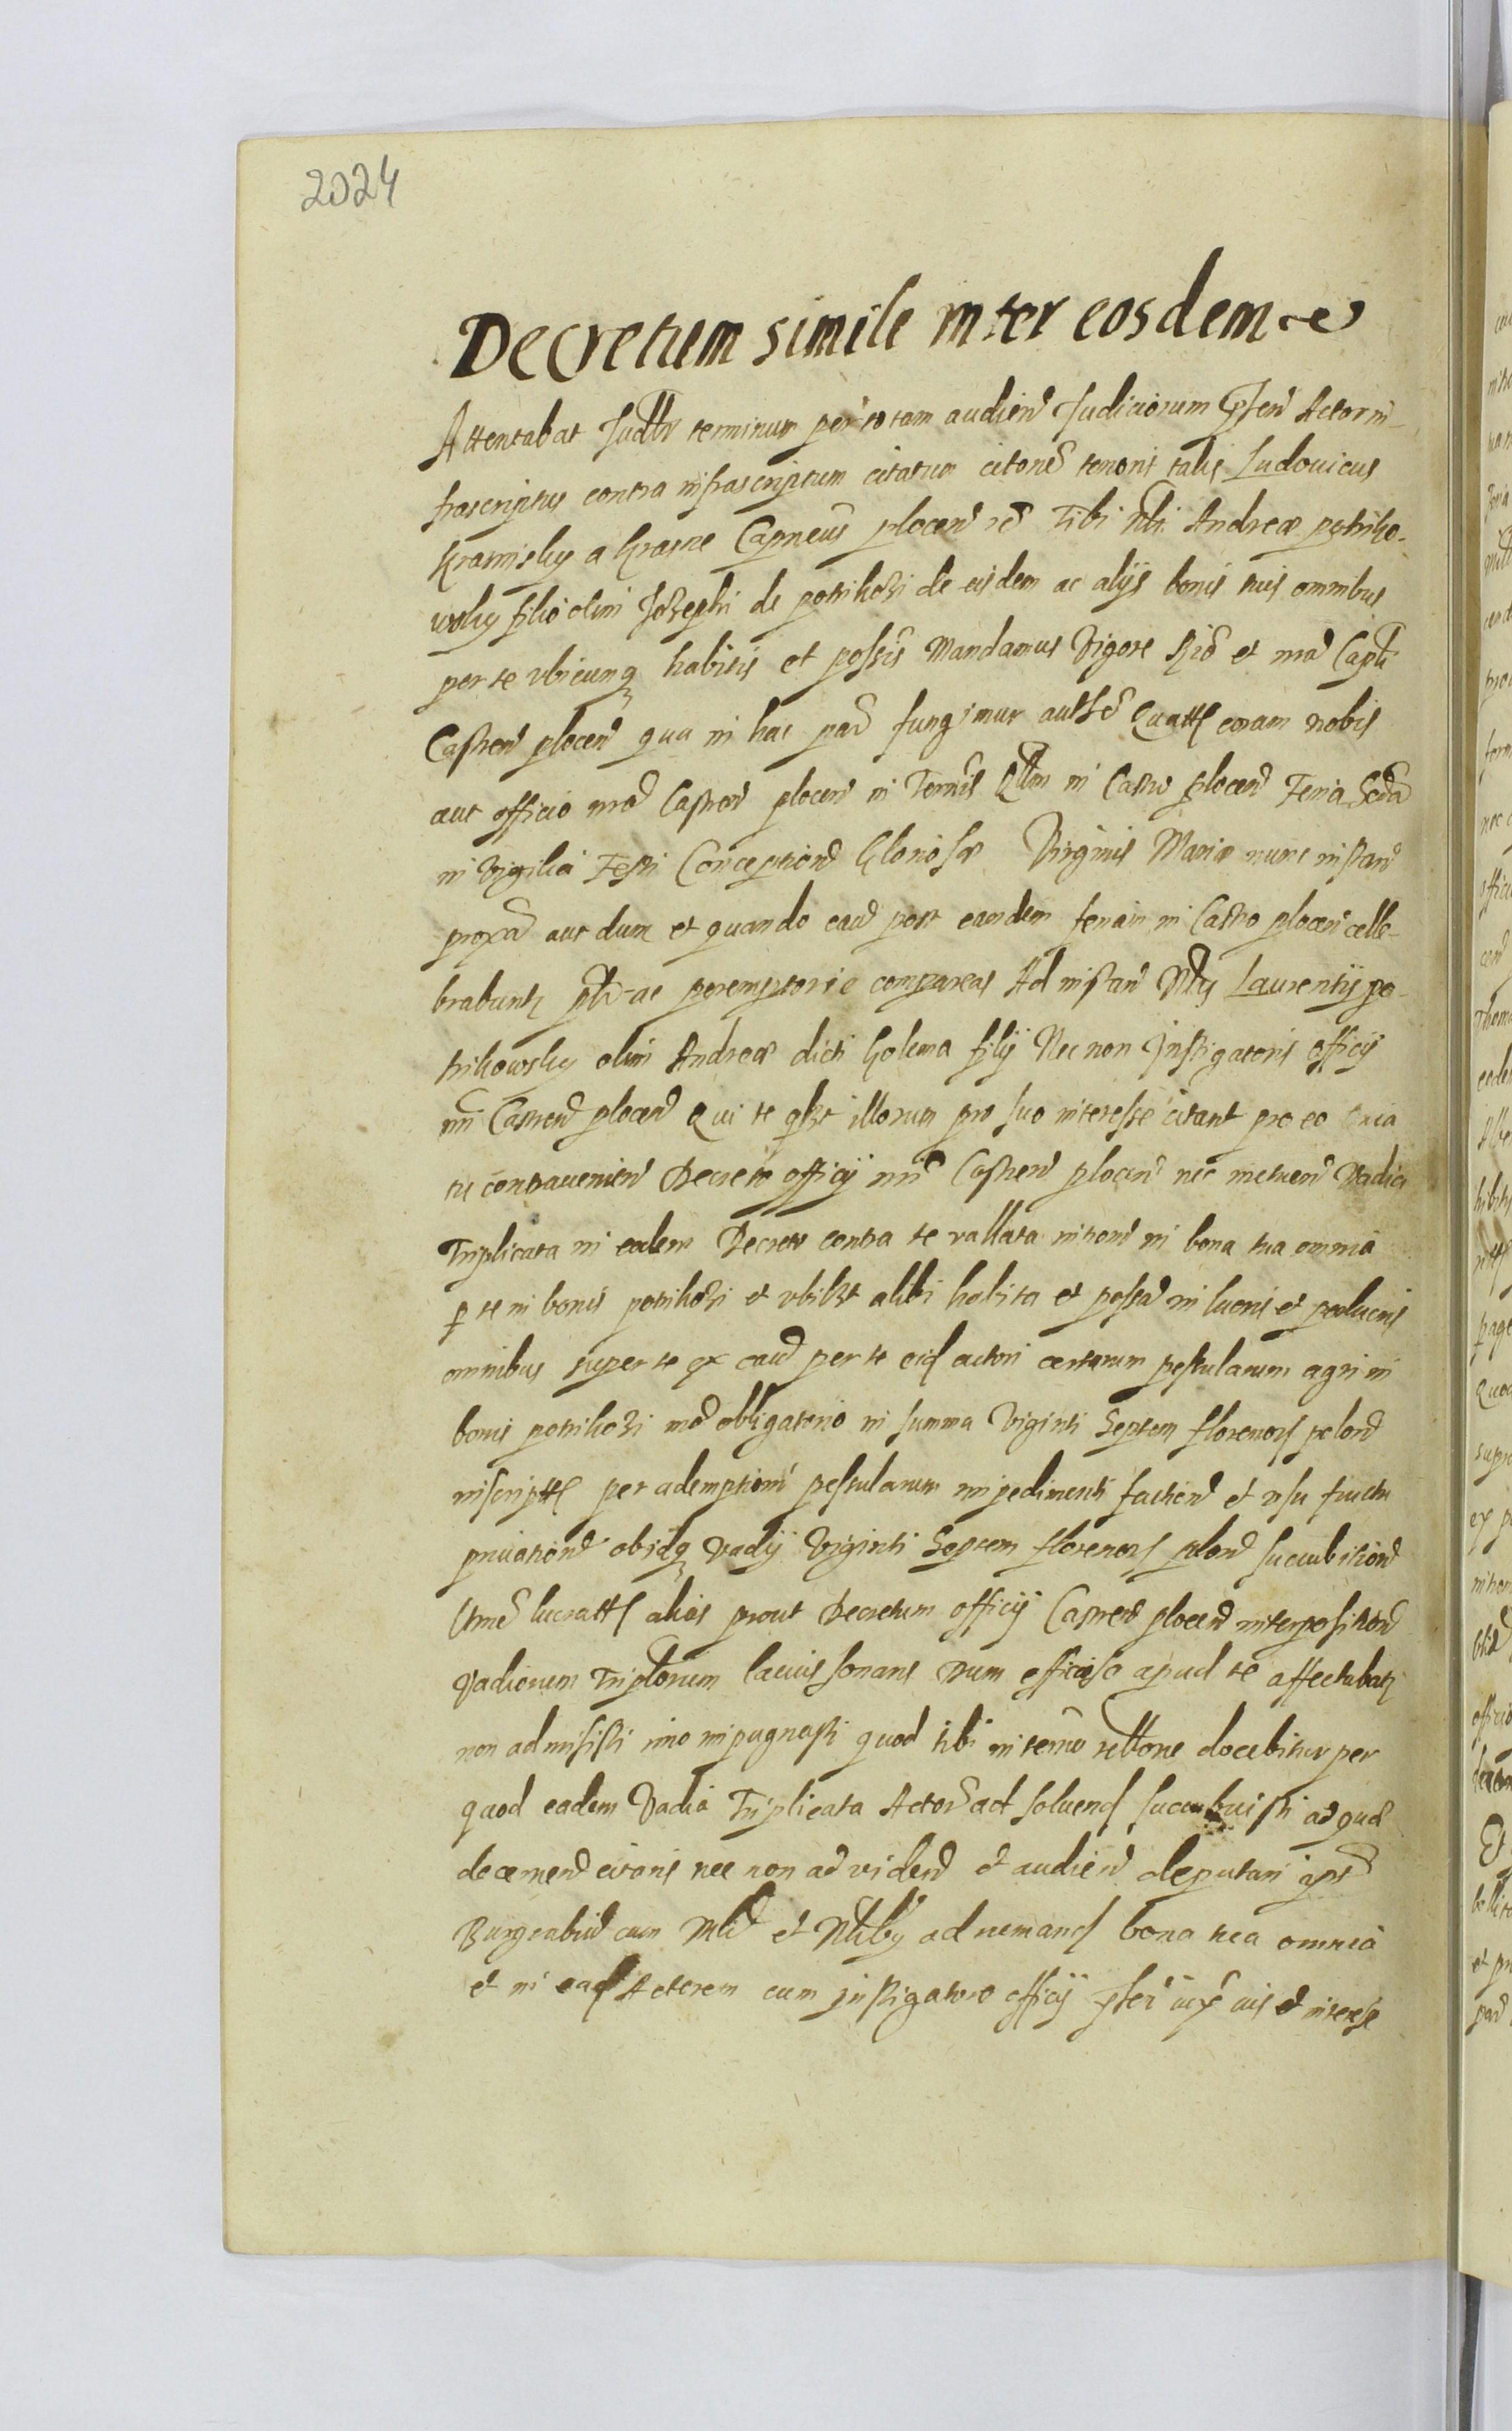 2024
Decretum simile inter eosdem
Attentabat Judtlr terminum per totam audien Judiciorum Pnsen Actor in-
frascriptus contra infrascriptum citatum citone tenoris talis Ludovicus
Krasinsky a Krasne Capneus plocen etc Tibi Nbi Andreæ potriko-
wsky filio olim Josephi de potrikozi de eisdem ac alijs bonis tuis omnibus
per te vbicunq habitis et possis Mandamus Vigore Officio et mad Captli
Castren plocen qua in hac par fungimur autte Quatts coram nobis
aut officio nro Castren plocen in Termis Qllm in Castro plocen Feria Scda
in Vigilia Festi Conceptionis Gloriosæ Virginis Mariæ nunc instan
proxa aut dum et quando ead post eandem feriam in Castro plocen celle-
brabuntr ptr ac peremptorie compareas Ad instan Nlis Laurentij po-
trikowsky olim Andreæ dicti Golema filij Nec non Instigatoris officij
nri Castren plocen Qui te qlbt illorum pro suo interesse citant pro eo quia
tu contraveniend Decreto officij nri Castren plocen nec metuend Vadia
Triplicata in eodem Decreto contra te vallata introm in bona tua omnia
p te in bonis potrikozi et vbilbt alibi habita et possa in lucris et perlucris
omnibus super te ex caus per te eid actori certarum pestularum agri in
bonis potrikozi mo obligatorio in summa Viginti Septem florenors polon
inscriptts per ademptionem pestularum impedimenti faction et vsu fructu
privation obidq Vadij Viginti Septem florenors plon succubition
lucratts alias prout Decretum officij Castren plocen interposition
Vadiorum Triplorum lacius sonans Dum efficiose apud te affectabatr
non admisisti imo inpugnasti quod tibi in termo tlltone docebitur per
quod eadem Vadia Triplicata Actori ad solvend succubuisti ad quæ
decernend citaris nec non ad vidend et audiend deputari ipsi
Burgrabiu cum Mli et Nlibus ad nemand bona tua omnia
et in ead Actorem cum Instigatore officij pfen iuxta ius et interesse